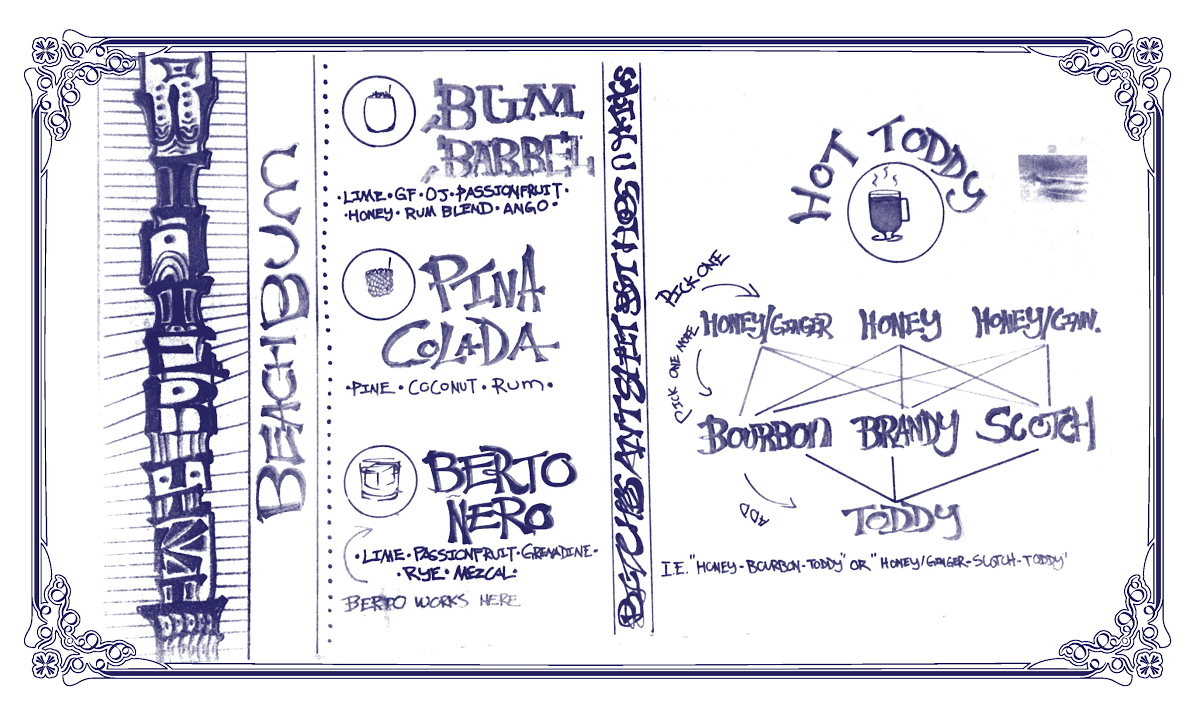 BEACH BUM
BUM
BARREL
·LIME·GF·OJ·PASSIONFRUIT·
·HONEY·RUM BLEND·ANGO·
PINA
COLADA
·PINE·COCONUT·RUM·
BERTO
NERO
·LIME·PASSIONFRUIT·GRENADINE·
·RYE·MEZCAL·
BERTO WORKS HERE
HOT TODDY
PICK ONE
HONEY/GINGER HONEY HONEY/CINN.
PICK ONE MORE
BOURBON BRANDY SCOTCH
ADD
TODDY
I.E. "HONEY-BOURBON-TODDY" OR "HONEY/GINGER-SCOTCH-TODDY"